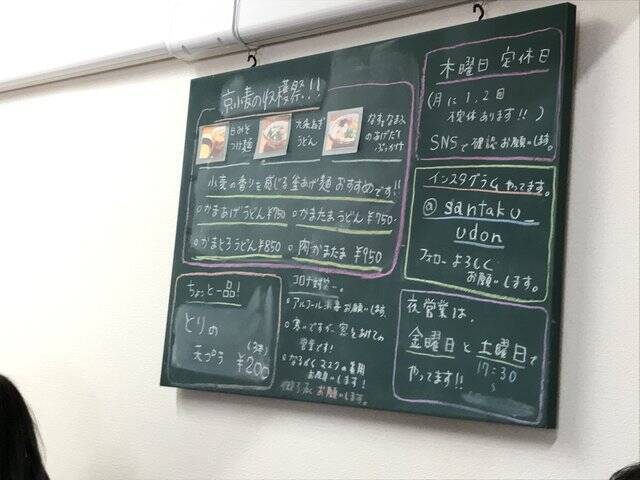 京小麦の収穫祭!!
白みそ
つけ麺
九条ねぎ
うどん
なす、なまふ
のあげだし
ぶっかけ
小麦の香りを感じる釜あげ麺おすすめです!!
かまあげうどん¥750
かまたまうどん¥750-
かまとろうどん¥850
肉かまたま¥950
ちょっと一品!
とりの
天プラ
(3本)
¥200
コロナ対策
アルコール消毒お願いします。
寒いですが、窓をあけての
営業です!
なるべくマスクの着用
お願いします!
御了承お願いします。
木曜日 定休日
(月に1、2回
不定休あります!!)
SNSで確認お願いします。
インスタグラムやってます。
@santaku_
udon
フォローよろしく
お願いします。
夜営業は、
金曜日と土曜日で
17:30
〜
やってます!!